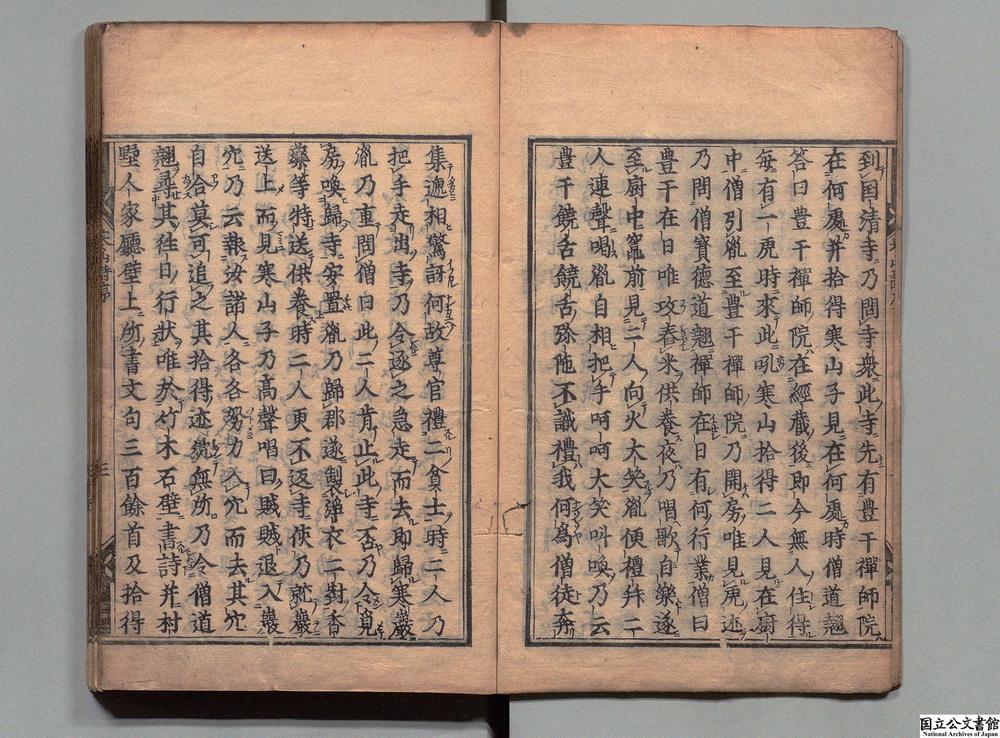 到国清寺乃問寺衆此寺先有豊干禪師院
在何處并拾得寒山子見在何處時僧道翹
答曰豊干禪師院在經藏後即今無人住得
毎有一虎時來此吼寒山拾得二人見在厨
中僧引胤至豊干禪師院乃開房唯見虎迹
乃問僧寶德道翹禪師在日有何行業僧曰
豊干在日唯攻舂米供養夜乃唱歌自樂遂
至厨中竈前見二人向火大笑胤便禮拜二
人連聲喝胤自相把手呵呵大笑叫喚乃云
豊干饒舌饒舌弥陁不識禮我何為僧徒奔
集遞相驚訝何故尊官禮二貧士時二人乃
把手走出寺乃令逐之急走而去即歸寒巖
胤乃重問僧曰此二人肯止此寺否乃令覓
房喚歸寺安置胤乃歸郡遂製浄衣二對香
藥等特送供養時二人更不返寺使乃就巖
送上而見寒山子乃高聲唱曰賊賊退入巖
穴乃云報汝諸人各各努力入穴而去其穴
自合莫可追之其拾得迹絶無所乃令僧道
翹尋其徃日行狀唯於竹木石壁書詩并村
墅人家廳壁上所書文句三百餘首及拾得
国立公文書館
National Archives of Japan